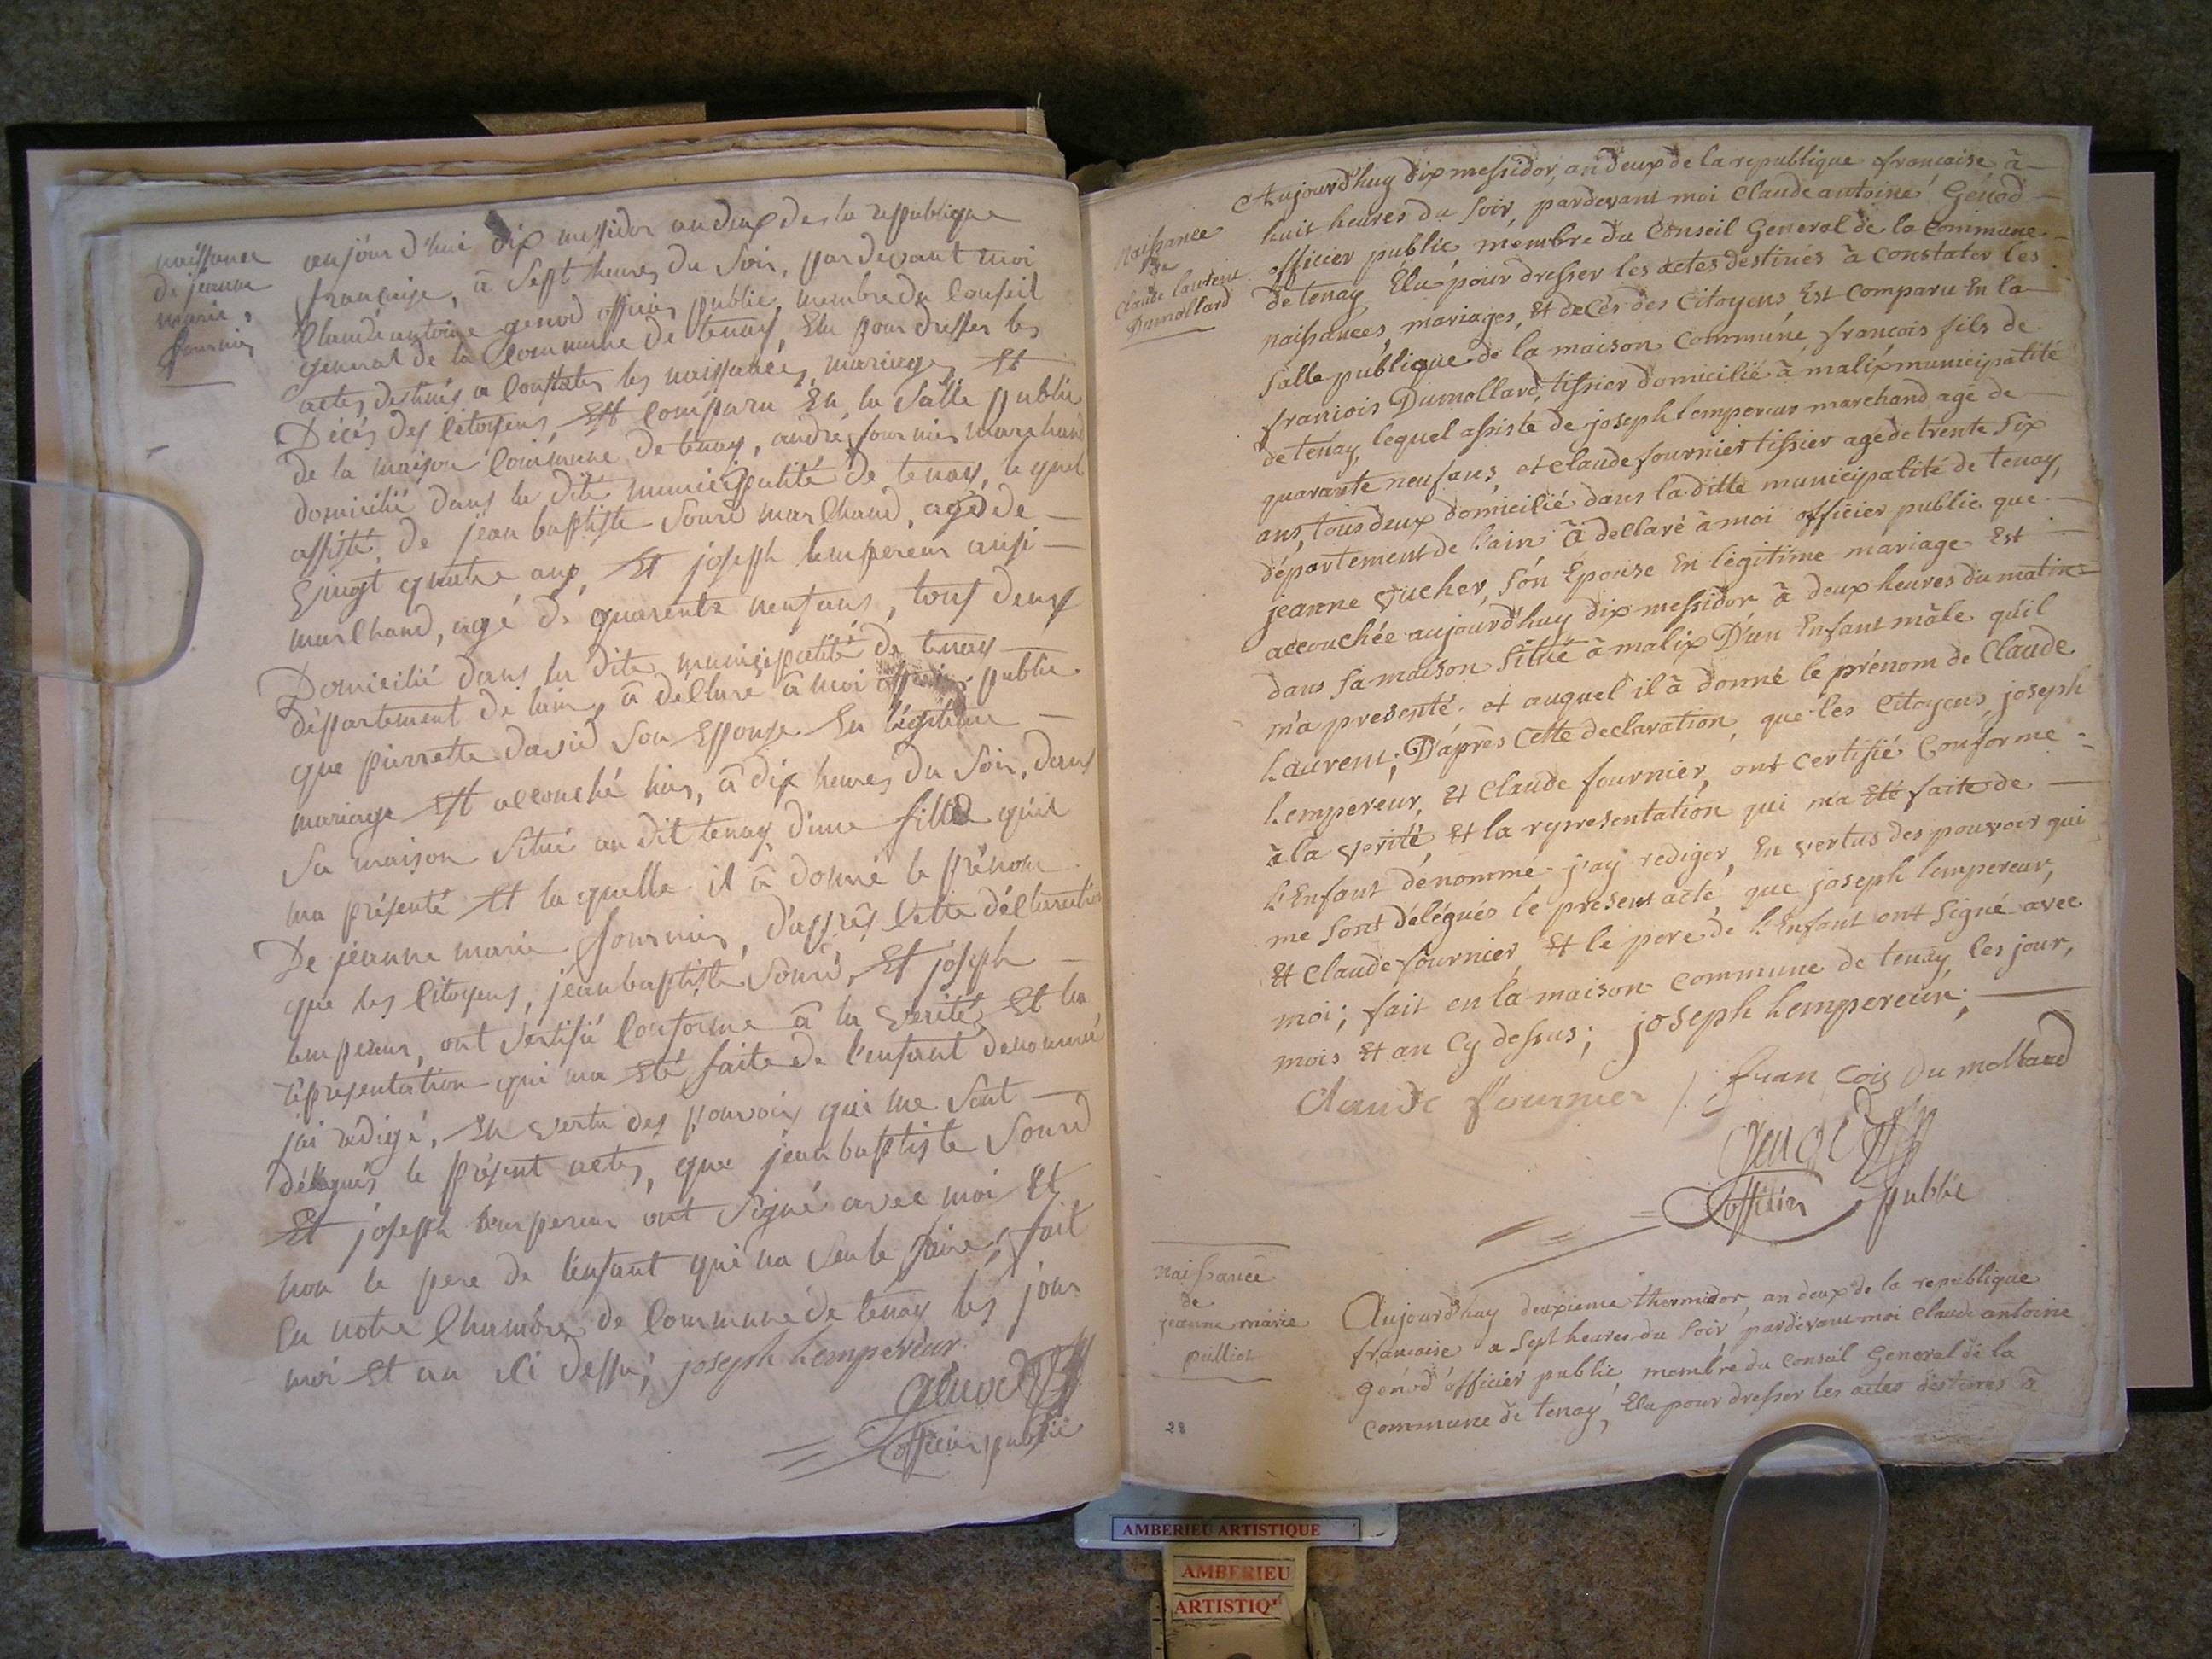 naissance
de jeanne
marie
fournier
aujour d'hui dix messidor an deux de la republique
française, à sept heures du soir, par devant moi
Claude antoine genod officier public, membre du Conseil
general de la Commune de tenay, élu pour dresser les
actes destinés a Constater les naissances, mariages Et
Décès des Citoyens Est comparu En la salle public
de la maison Commune de tenay, andré fournier marchand
domicilié dans la dite municipalité de tenay, le quel
assisté de jean baptiste Sourd marchand, agé de
vingt quatre ans, Et joseph lempereur aussi
marchand, agé de quarente neuf ans, tous deux
Domicilié dans la dite municipalité de tenay
département de lain, à déclaré à moi officier public
que pierrette david son Epouse En légitime
mariage Est accouché hier, à dix heures du soir, dans
sa maison situé au dit tenay d'une fille qu'il
ma présenté Et la quelle il à donné le prénom
De jeanne marie fournier, d'après Cette déclaration
que les Citoyens, jean baptiste Sourd, Et joseph
lempereur, ont Certifié Conforme à la verité, Et la
représentation qui ma Eté faite de l'enfant dénommé
jai rédigé, En vertu des pouvoirs qui me sont
délégués le présent actes, que jean baptiste Sourd
Et joseph lempereur ont signé avec moi Et
non le pere de l'enfant qui na seu le faire; fait
En notre Chambre de Commune de tenay les jour
moi Et an Ci dessu; joseph lempereur
genod
officier public
Naissance
de
Claude laurent
Dumollard
Aujourd'huy dix messidor, an deux de la republique francaise à
huit heures du soir, pardevant moi Claude antoine Génod
officier public, mémbre du Conseil General de la Commune
de tenay Elu pour dresser les actes destinés à Constater les
naissances, mariages, Et deCès des Citoyens Est Comparu En la
salle publique de la maison Commune, francois fils de
francois Dumollard, tissier domicilié à malix municipalité
de tenay, lequel assisté de joseph lempereur marchand agé de
quarante neuf ans, et Claude fournier tissier agé de trente six
ans, tous deux domicilié dans la ditte municipalité de tenay,
département de l'ain à declaré à moi officier public que
jeanne vucher, son Epouse En légitime mariage Est
accouchée aujourd'huy dix messidor à deux heures du matin
dans sa maison situé à malix D'un Enfant mâle qu'il
m'a presenté et auquel il à donné le prénom de Claude
Laurent; D'aprés Cette declaration, que les Citoyens joseph
Lempereur, Et Claude fournier, ont certifié Conforme
à la verité, Et la representation qui m'a Eté faite de
l'Enfant dénommé j'ay rediger, En vertus des pouvoir qui
me sont délégués le present acte, que joseph lempereur,
Et Claude fournier Et le pere de l'Enfant ont signé avec
moi; fait en la maison commune de tenay les jour,
mois Et an Cy dessus; joseph Lempereur;
Claude fournier fran cois Du mollard
genod
officier public
Naissance
de
jeanne marie
pulliot
28
Aujourd'huy deuxieme thermidor, an deux de la republique
francaise a sept heures du soir pardevant moi Claude antoine
Génod officier public membre du Conseil General de la
commune de tenay, Elu pour dresser les actes destinés à
AMBERIEU ARTISTIQUE
AMBERIEU
ARTISTIQ